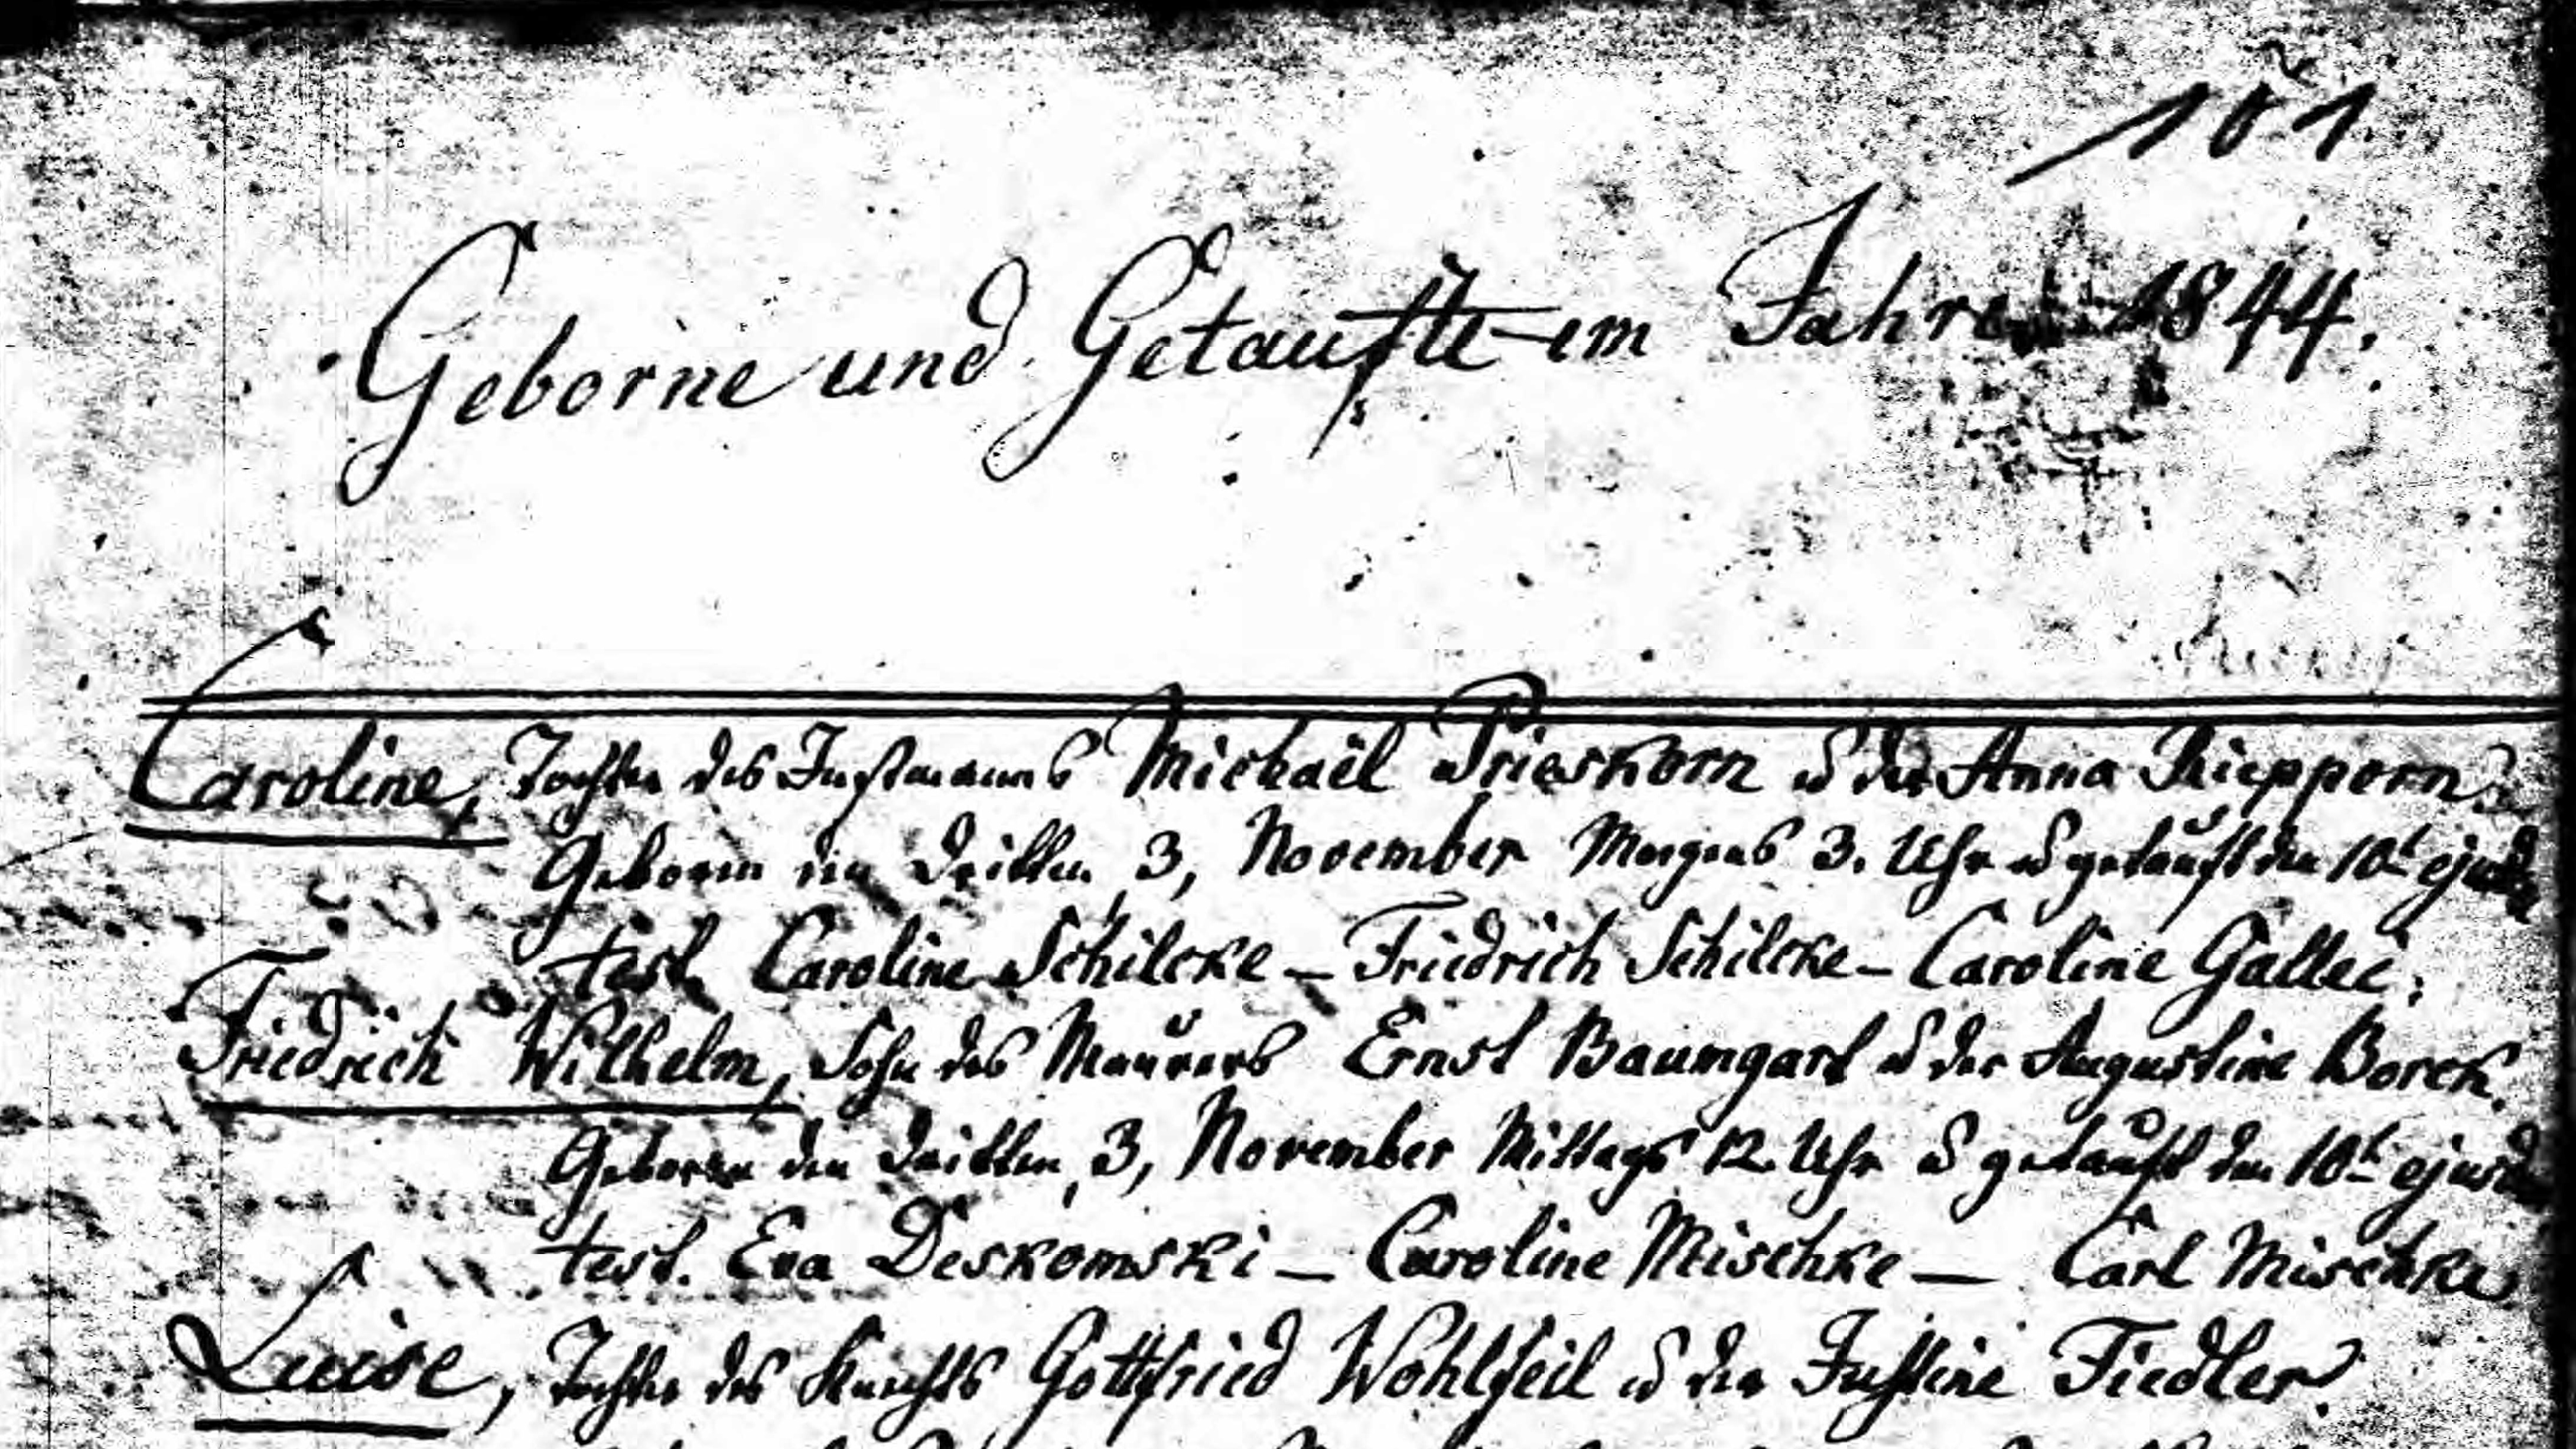 101.
Geborne und Getaufte im Jahre 1844.
Caroline, Tochter des Instmanns Michaël Prieskorn u der Anna Riepporn.
Geboren den dritten, 3, November Morgens 3. Uhr u getauft den 10t ejusd
test. Caroline Schilcke – Friedrich Schilcke – Caroline Gallei;
Friedrich Wilhelm, Sohn des Maurers Ernst Baumgart u der Augustine Borck.
Geboren den dritten, 3, November Mittags 12. Uhr u getauft den 10t ejusd
test. Eva Deskomski – Caroline Mischke – Carl Mischke
Luise, Tochter des Knechts Gottfried Wohlfeil u der Justine Fiedler.